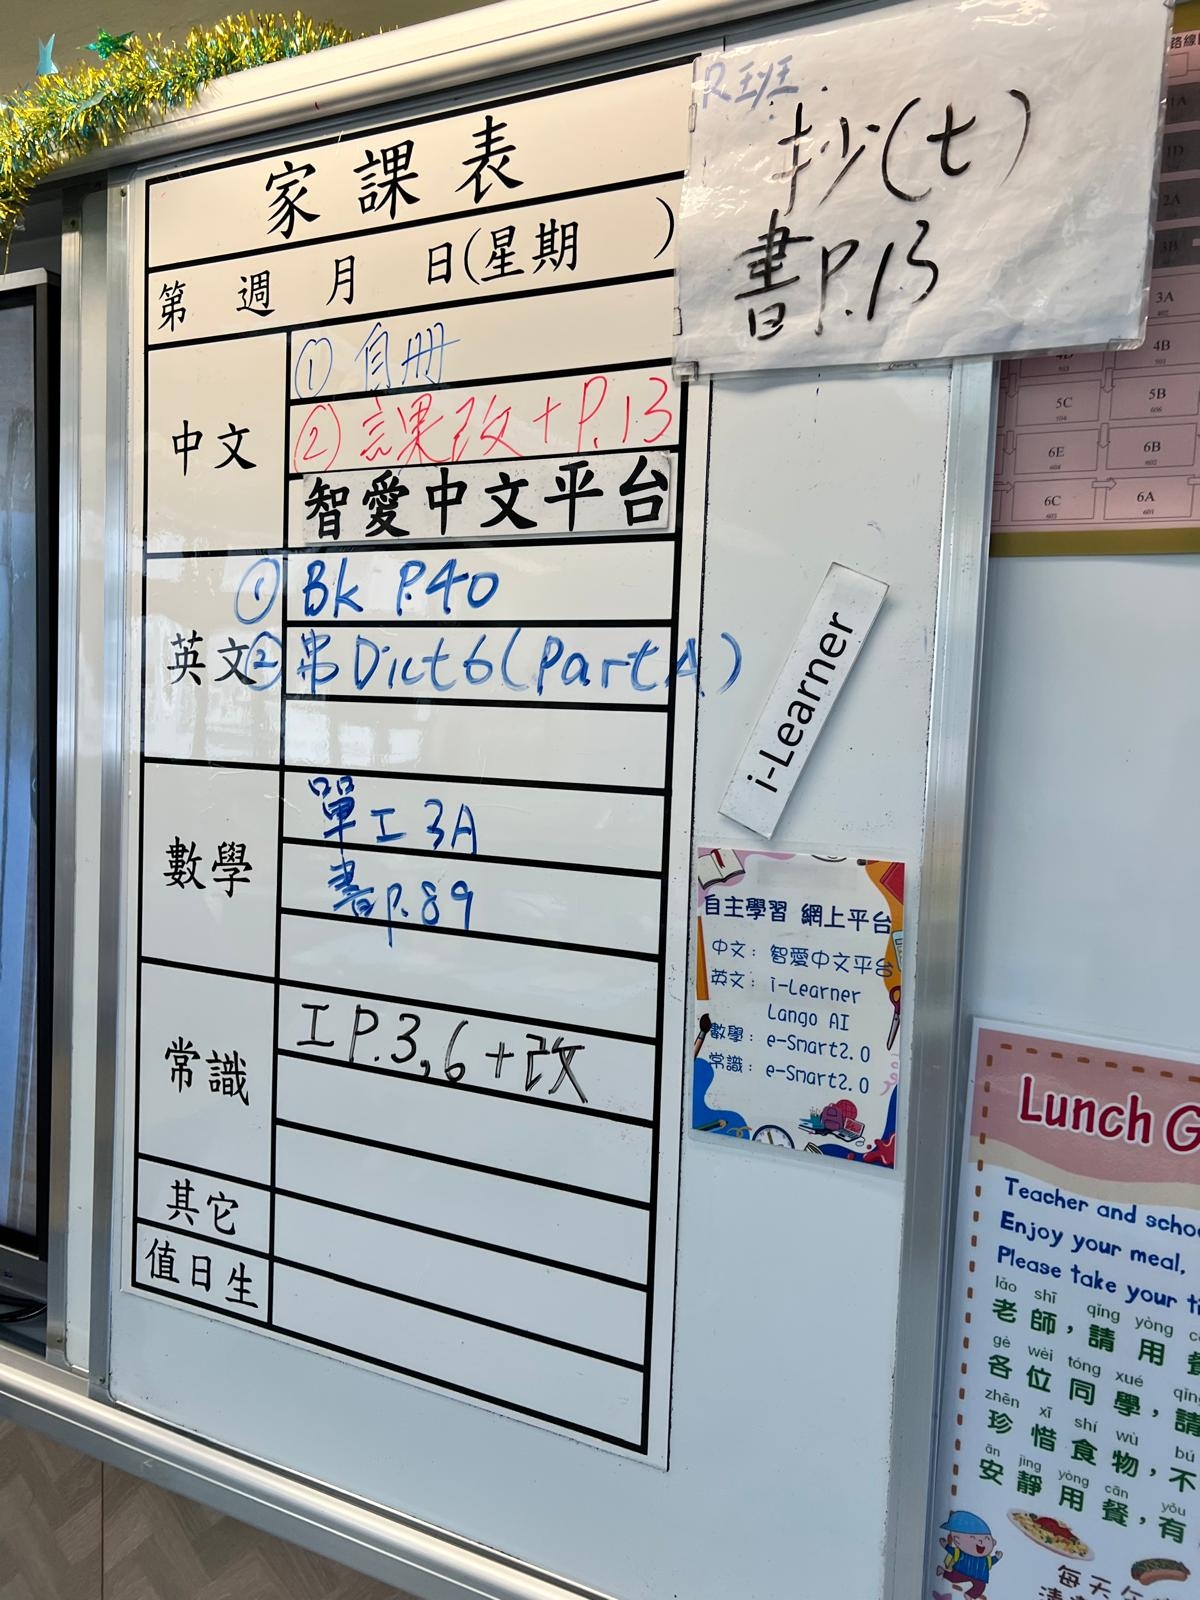 家課表
第 週 月 日(星期 )
中文
① 自冊
② 課改+P.13
智愛中文平台
英文
① Bk P.40
② 串Dict 6(Part A)
數學
單工 3A
書P.89
常識
工 P.3,6+改
其它
值日生
P.班
抄(七)
書P.13
路線
1A
1D
2A
3B
3A
4D
4B
5C
5B
6E
6B
6C
6A
i-Learner
自主學習 網上平台
中文: 智愛中文平台
英文: i-Learner
Lango AI
數學: e-Smart2.0
常識: e-Smart2.0
Lunch G
Teacher and schoo
Enjoy your meal,
Please take your ti
lǎo shī qǐng yòng c
老師,請用餐
gè wèi tóng xué qǐng
各位同學,請
zhēn xī shí wù bú
珍惜食物,不
ān jìng yòng cān yǒu
安靜用餐,有
每天午